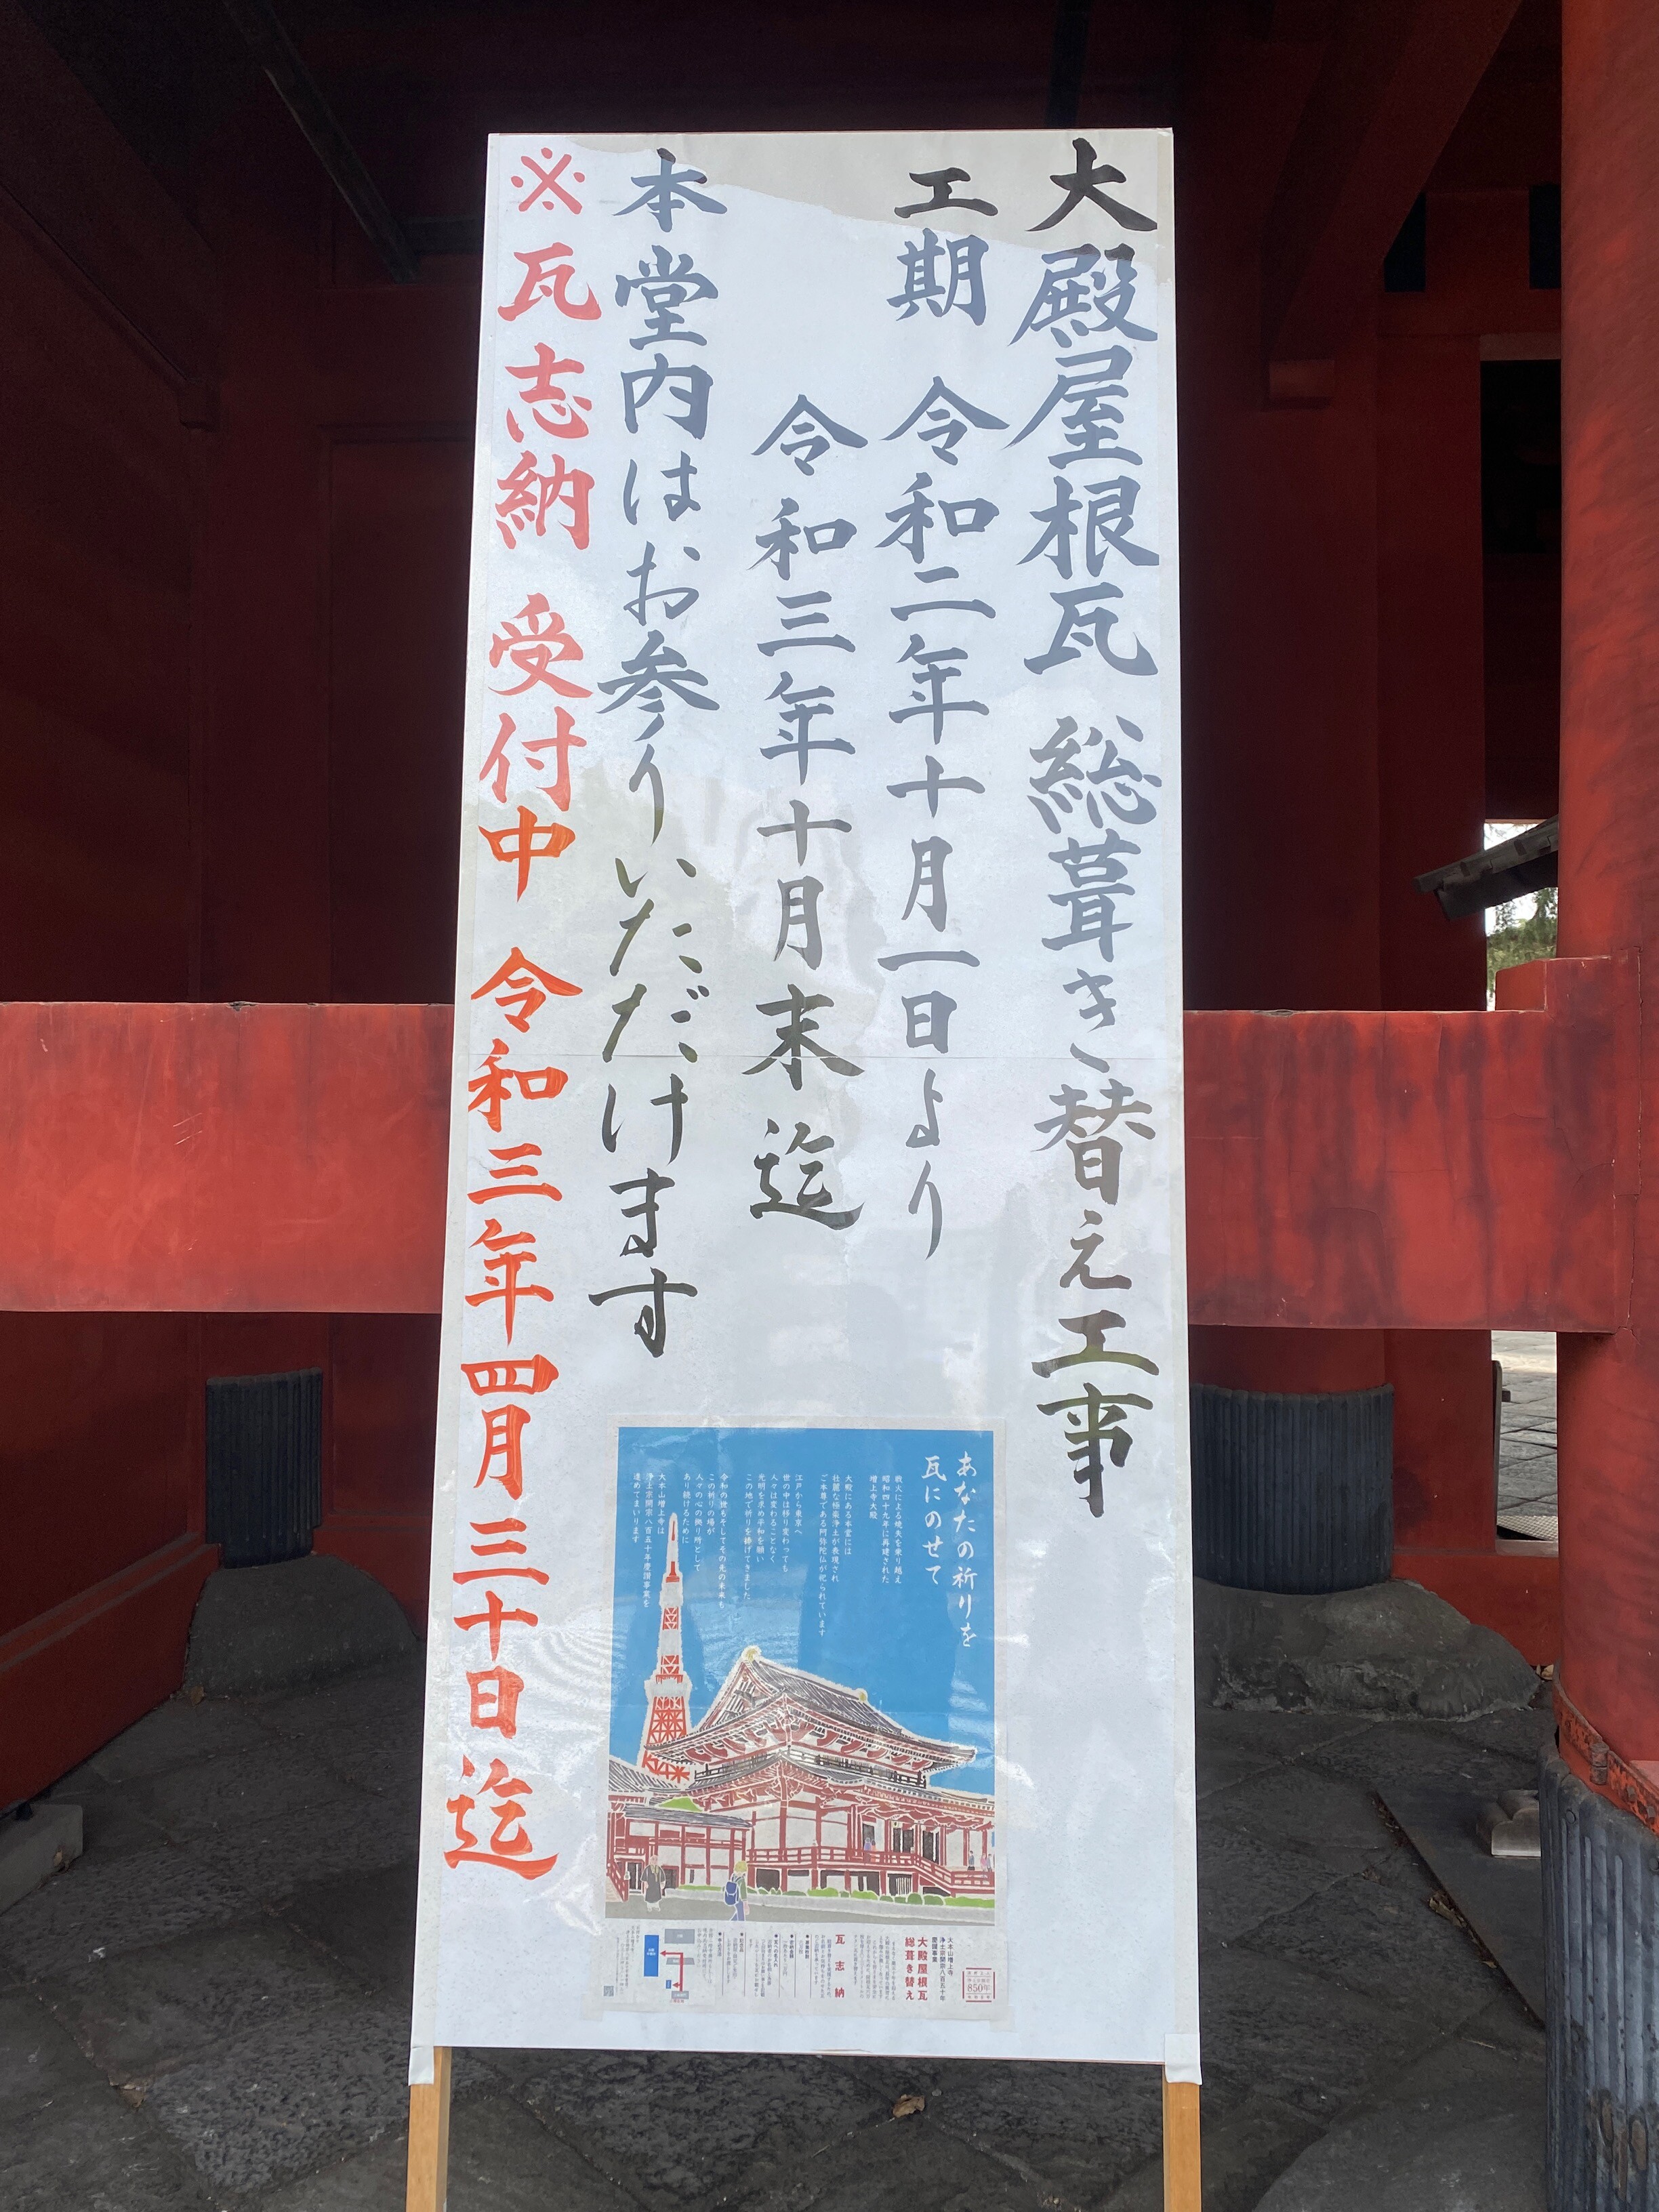 大殿屋根瓦 総葺き替え工事
工期 令和二年十月一日より
令和三年十月末迄
本堂内はお参りいただけます
※瓦志納 受付中 令和三年四月三十日迄
あなたの祈りを
瓦にのせて
戦火による焼失を乗り越え
昭和四十九年に再建された
増上寺大殿
大殿にある本堂には
壮麗な極楽浄土が表現され
ご本尊である阿弥陀仏が祀られています
江戸から東京へ
世の中は移り変わっても
人々は変わることなく
光明を求め平和を願い
この地で祈りを捧げてきました
令和の世もそしてその先の未来も
この祈りの場が
人々の心の拠り所として
あり続けるために
大本山増上寺は
浄土宗開宗八百五十年慶讃事業を
進めてまいります
850年
大本山増上寺
浄土宗開宗八百五十年
慶讃事業
大殿屋根瓦
総葺き替え
瓦志納